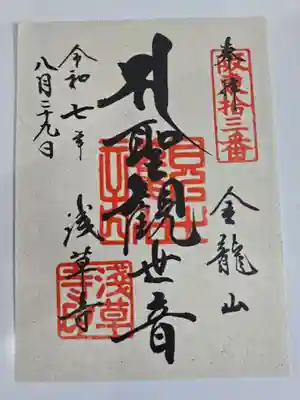 奉拝
坂東拾三番
金龍山
聖観世音
浅草寺
令和七年
八月二十九日
淺草寺